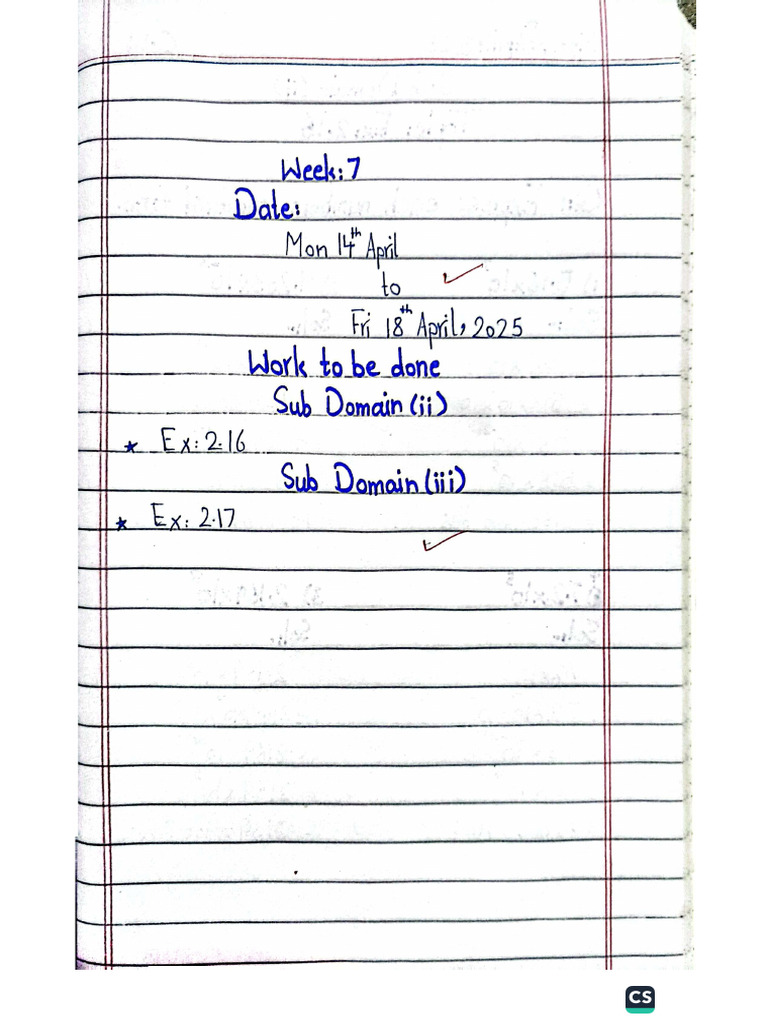 Week: 7
Date:
Mon 14th April
to
Fri 18th April, 2025
Work to be done
Sub Domain (ii)
* Ex: 2.16
Sub Domain (iii)
* Ex: 2.17
CS